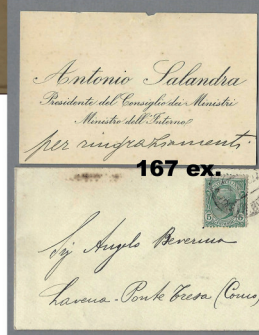 Antonio Salandra
Presidente del Consiglio dei Ministri
Ministro dell'Interno
per ringraziamenti.
167 ex.
5
Sig Angelo Beverina
Lavena-Ponte Tresa (Como)